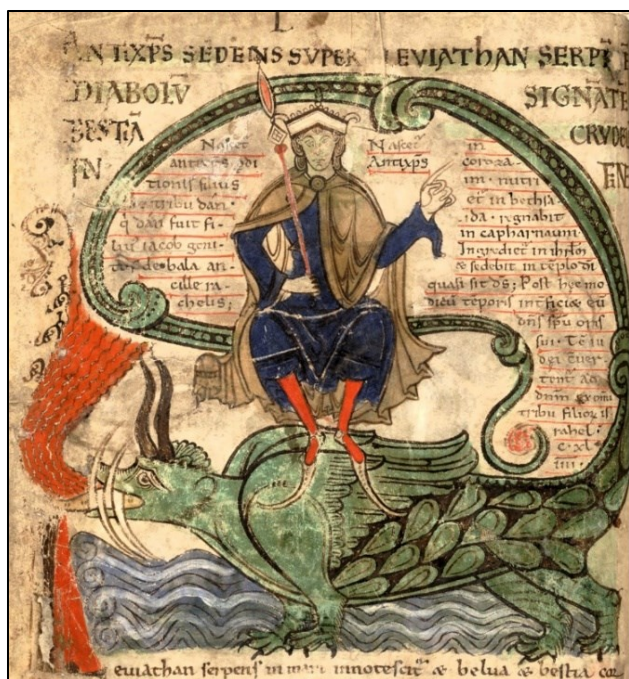 L
ANTIXP̄S SEDENS SUPER LEVIATHAN SERPĒ
DIABOLŪ SIGNĀTĒ
BESTIĀ CRVDELĒ
IN FINE
Nascet᷑
antixp̄s pdi
tionis filius
de tribu dan ·
q̄ dan fuit fi-
lius iacob geni
de bala an-
cille ra-
chelis;
Nascet᷑
Antixp̄s
in
coroza-
im · nutri
et᷑ in bethsa-
ida · regnabit
in capharnaum ·
Ingrediet᷑ in ihrl̄m
& sedebit in tēplo dī
quasi sit d̄s; Post hęc mo
dicū tēporis int̄ficiæ eū
dn̄s sp̄u oris
sui · Tē
dei
ad
dn̄m
tribu filioꝝ is
rahel ·
c · xl
iiii ·
Leviathan serpens in mari innotescit᷑ & belua & bestia